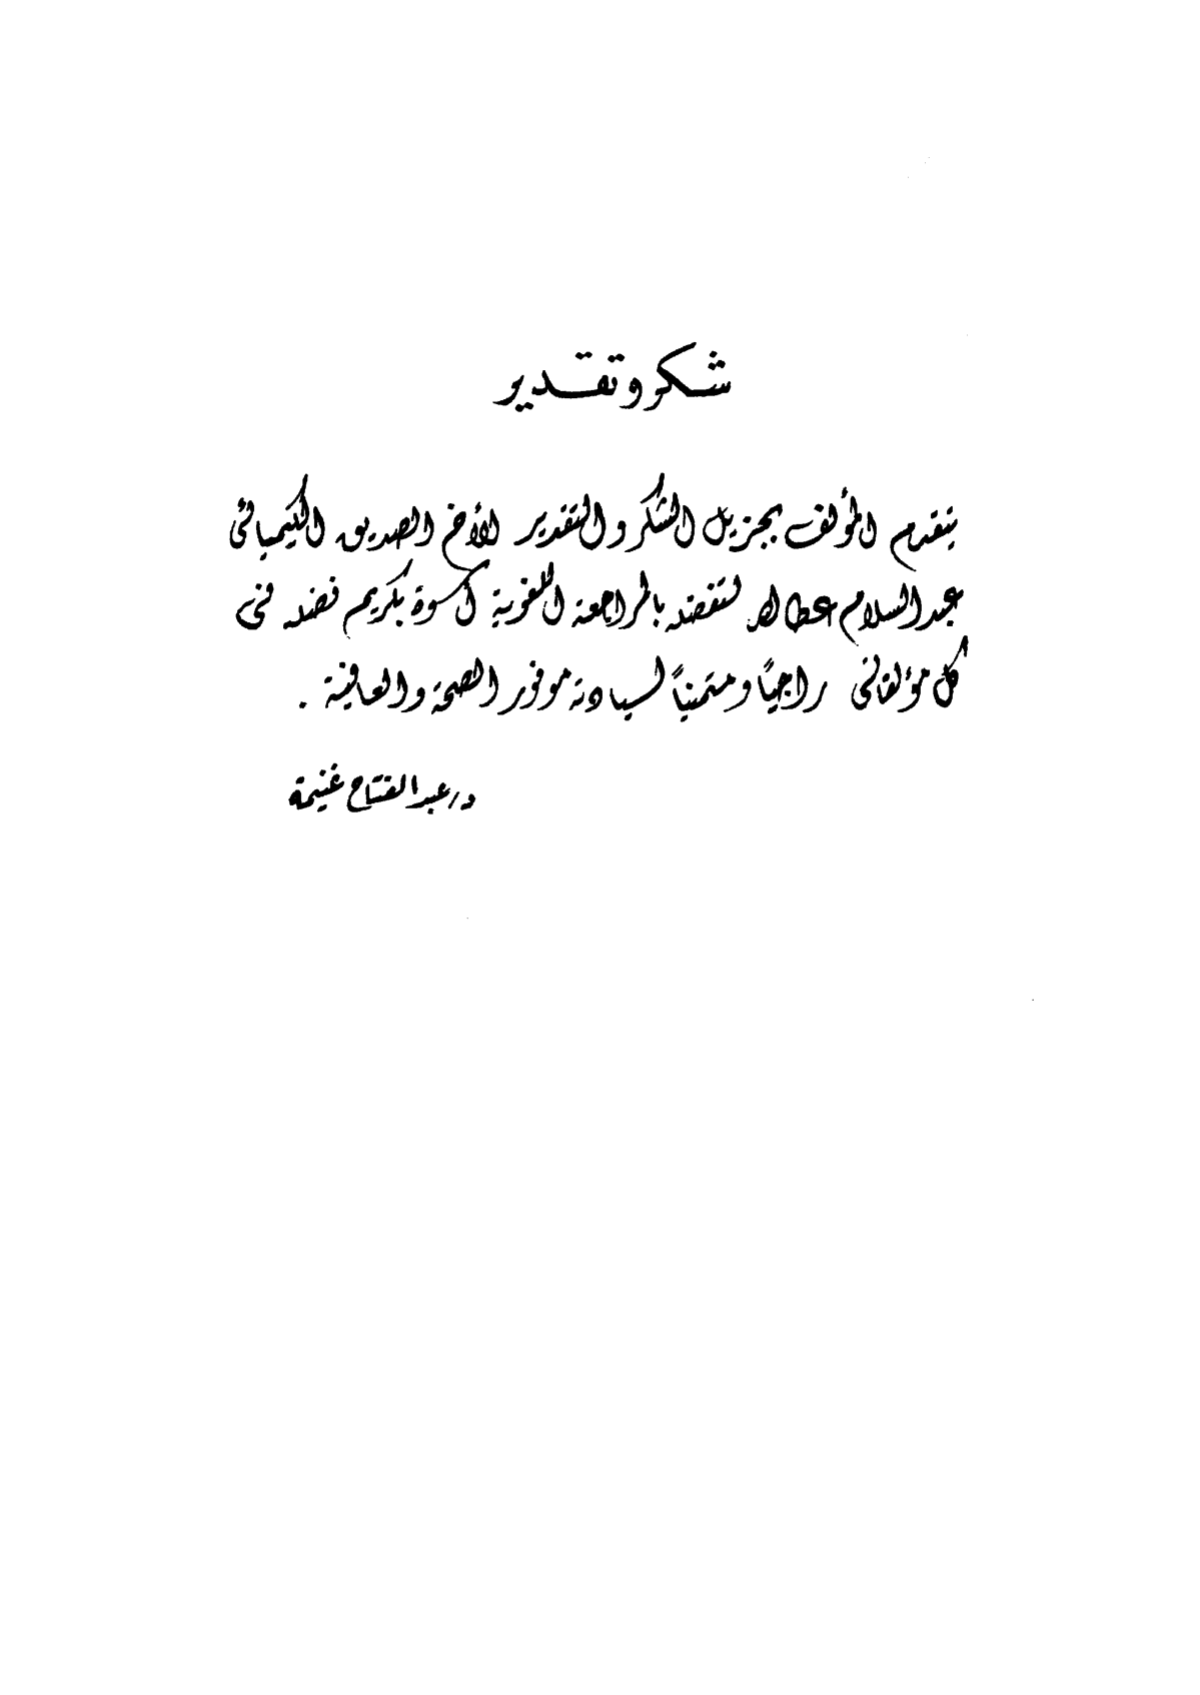 شكر وتقدير
يتقدم المؤلف بجزيل الشكر والتقدير للأخ الصديق الكيميائى
عبد السلام عطا الله لتفضله بالمراجعة اللغوية أسوة بكريم فضله فى
كل مؤلفاتى راجياً ومتمنياً لسيادته موفور الصحة والعافية .
د/ عبد الفتاح غنيمة